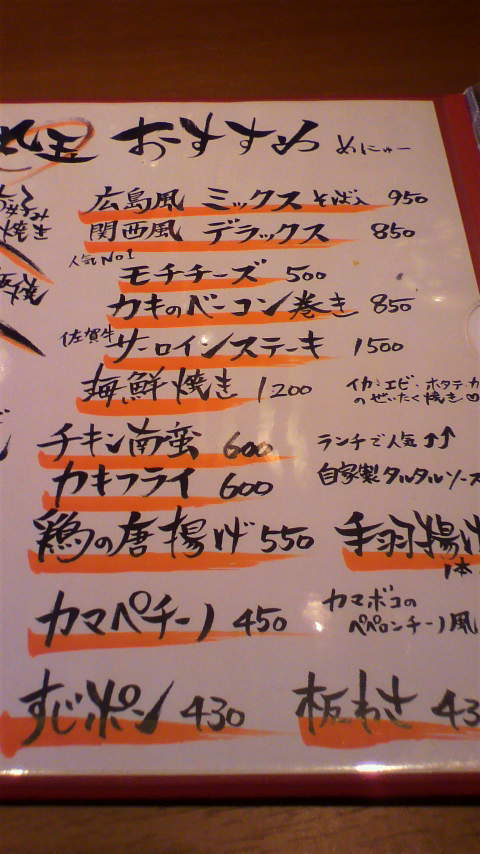 丸玉 おすすめ めにゅー
広島風 ミックス そば入 950
関西風 デラックス 850
人気No1
モチチーズ 500
カキのベーコン巻き 850
佐賀牛
サーロインステーキ 1500
海鮮焼き 1200 イカ・エビ・ホタテ・カ
のぜいたく焼き♡
チキン南蛮 600 ランチで人気↑↑
カキフライ 600 自家製タルタルソース
鶏の唐揚げ 550 手羽揚げ
1本
カマペチーノ 450 カマボコの
ペペロンチーノ風
すじポン 430 板わさ 43